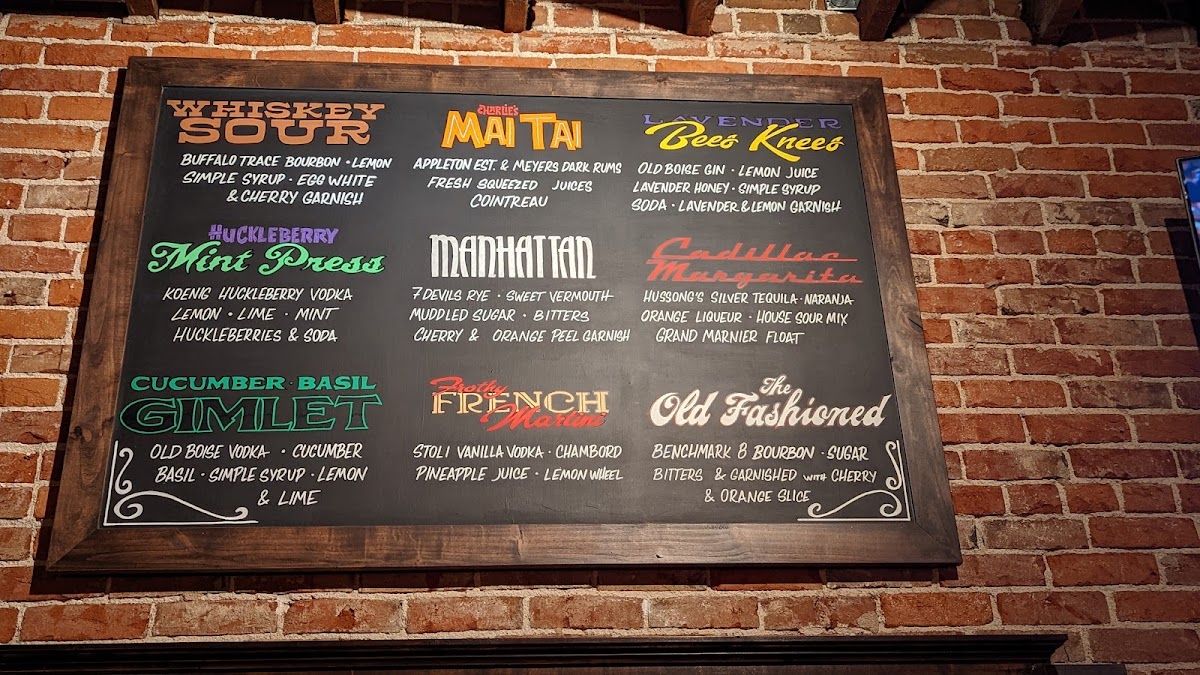 WHISKEY
SOUR
BUFFALO TRACE BOURBON · LEMON
SIMPLE SYRUP · EGG WHITE
& CHERRY GARNISH
CHARLIE'S
MAI TAI
APPLETON EST. & MEYERS DARK RUMS
FRESH SQUEEZED JUICES
COINTREAU
LAVENDER
Bees Knees
OLD BOISE GIN · LEMON JUICE
LAVENDER HONEY · SIMPLE SYRUP
SODA · LAVENDER & LEMON GARNISH
HUCKLEBERRY
Mint Press
KOENIG HUCKLEBERRY VODKA
LEMON · LIME · MINT
HUCKLEBERRIES & SODA
MANHATTAN
7 DEVILS RYE · SWEET VERMOUTH
MUDDLED SUGAR · BITTERS
CHERRY & ORANGE PEEL GARNISH
Cadillac
Margarita
HUSSONG'S SILVER TEQUILA · NARANJA
ORANGE LIQUEUR · HOUSE SOUR MIX
GRAND MARNIER FLOAT
CUCUMBER · BASIL
GIMLET
OLD BOISE VODKA · CUCUMBER
BASIL · SIMPLE SYRUP · LEMON
& LIME
Frothy
FRENCH
Martini
STOLI VANILLA VODKA · CHAMBORD
PINEAPPLE JUICE · LEMON WHEEL
The
Old Fashioned
BENCHMARK 8 BOURBON · SUGAR
BITTERS & GARNISHED WITH CHERRY
& ORANGE SLICE